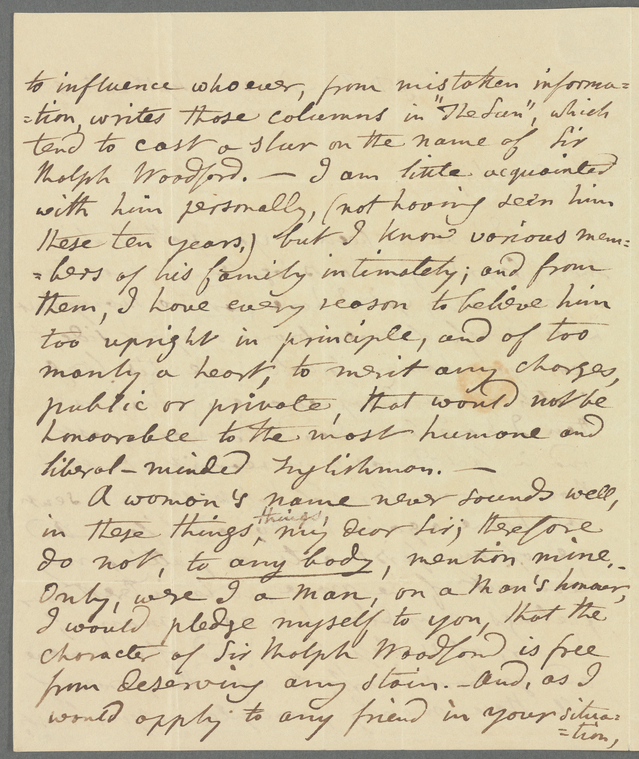 to influence whoever, from mistaken informa=
=tion, writes those columns in "The Sun", which
tend to cast a slur on the name of Sir
Ralph Woodford. — I am little acquainted
with him personally, (not having seen him
these ten years,) but I know various mem=
=bers of his family intimately; and from
them, I have every reason to believe him
too upright in principle, and of too
manly a heart, to merit any charges,
public or private, that would not be
honourable to the most humane and
liberal-minded Englishman. —
A woman's name never sounds well,
in these things, my dear Sir; therefore
things
do not, to any body, mention mine. -
Only, were I a man, on a Man's honour,
I would pledge myself to you, that the
character of Sir Ralph Woodford is free
from deserving any stain. - And, as I
would apply to any friend in your situa=
=tion,